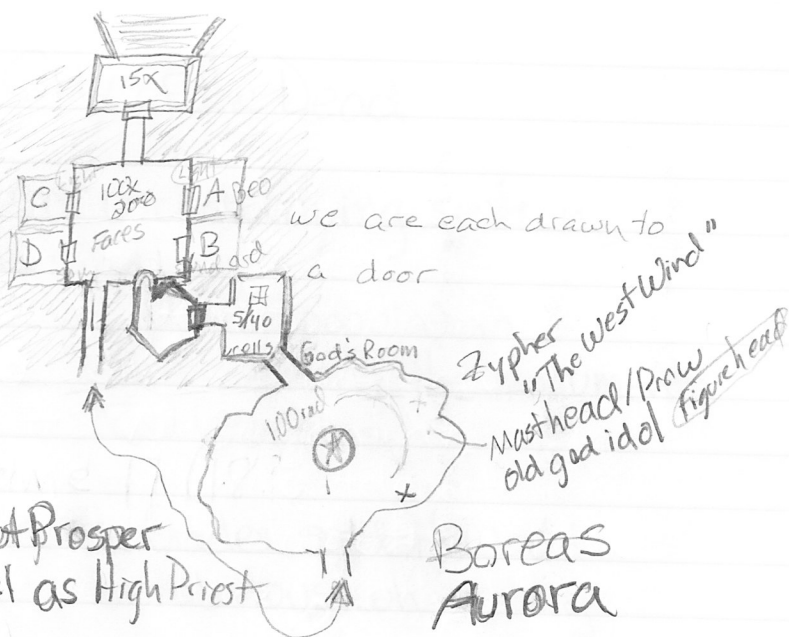 15x
C
100x
200
Faces
A
D
B
we are each drawn to
a door
5/40
God's Room
100 rad
Zypher
"The West Wind"
Masthead/Prow
old god idol
Figurehead
Prosper
as High Priest
Boreas
Aurora